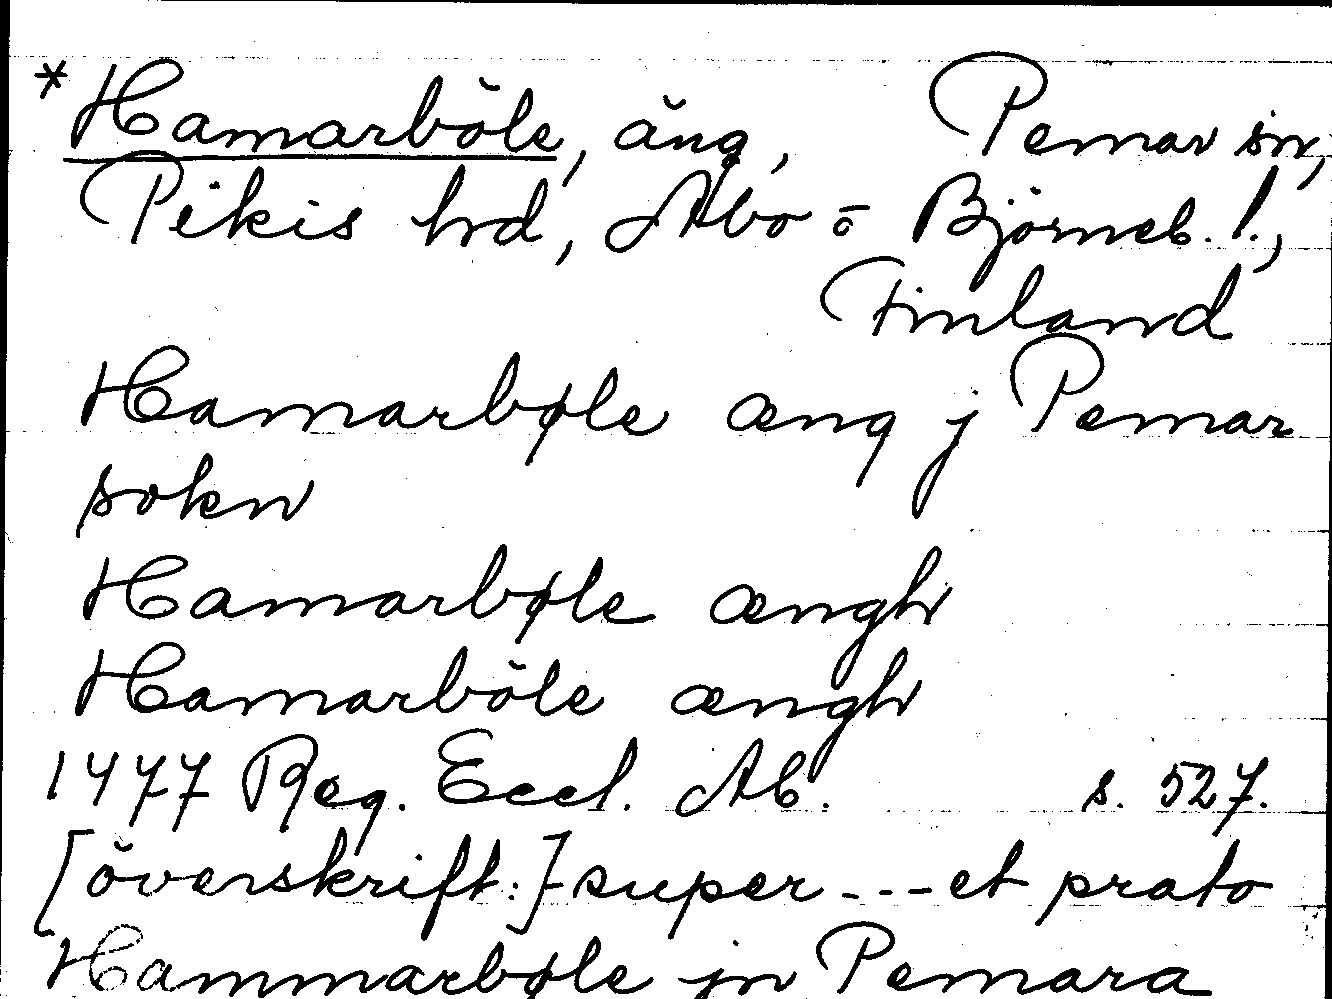 *Hamarböle, äng, Pemar sn,
Pikis hd, Åbo o Björneb. l.,
Finland
Hamarbøle æng j Pemar
sokn
Hamarbøle ængh
Hamarböle ængh
1477 Reg. Eccl. Ab. s. 527.
[överskrift:] super --- et prato
Hammarbøle jn Pemara